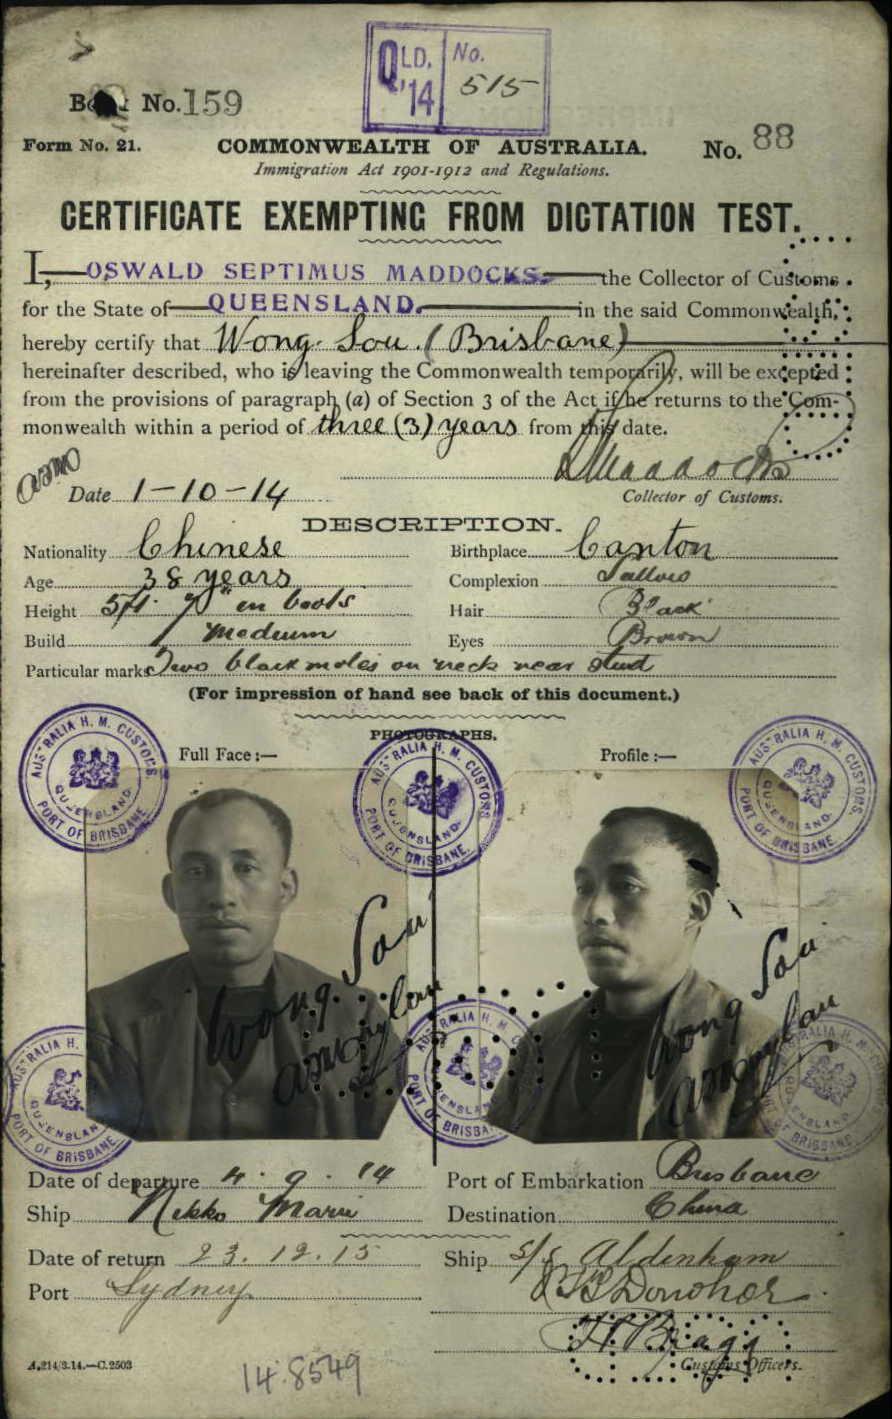 QLD. '14 No. 515
Book No. 159
Form No. 21. COMMONWEALTH OF AUSTRALIA. No. 88
Immigration Act 1901-1912 and Regulations.
CERTIFICATE EXEMPTING FROM DICTATION TEST.
I, OSWALD SEPTIMUS MADDOCKS. the Collector of Customs
for the State of QUEENSLAND. in the said Commonwealth,
hereby certify that Wong Sou. (Brisbane)
hereinafter described, who is leaving the Commonwealth temporarily, will be excepted
from the provisions of paragraph (a) of Section 3 of the Act if he returns to the Com-
monwealth within a period of three (3) years from this date.
Maddocks
Date 1-10-14 Collector of Customs.
DESCRIPTION.
Nationality Chinese Birthplace Canton
Age 38 years Complexion Sallow
Height 5ft. 7" in boots Hair Black
Build Medium Eyes Brown
Particular marks Two black moles on neck near stud
(For impression of hand see back of this document.)
PHOTOGRAPHS.
Full Face :— Profile :—
AUSTRALIA H. M. CUSTOMS QUEENSLAND PORT OF BRISBANE.
AUSTRALIA H. M. CUSTOMS QUEENSLAND. PORT OF BRISBANE.
AUSTRALIA H. M. CUSTOMS QUEENSLAND. PORT OF BRISBANE
Wong Sou
Wong Sou
AUSTRALIA H. QUEENSLAND PORT OF BRISBANE.
AUSTRALIA H. M. C QUEENSLAND PORT OF BRISBANE
AUSTRALIA H. M. CUSTOMS QUEENSLAND PORT OF BRISBANE
Date of departure 4. 9. '14 Port of Embarkation Brisbane
Ship Nikko Maru Destination China
Date of return 23.12.15 Ship s/s Aldenham
Port Sydney Donohoe
H Bragg
Customs Officers.
A.214/3.14.—C.2503
14.8549